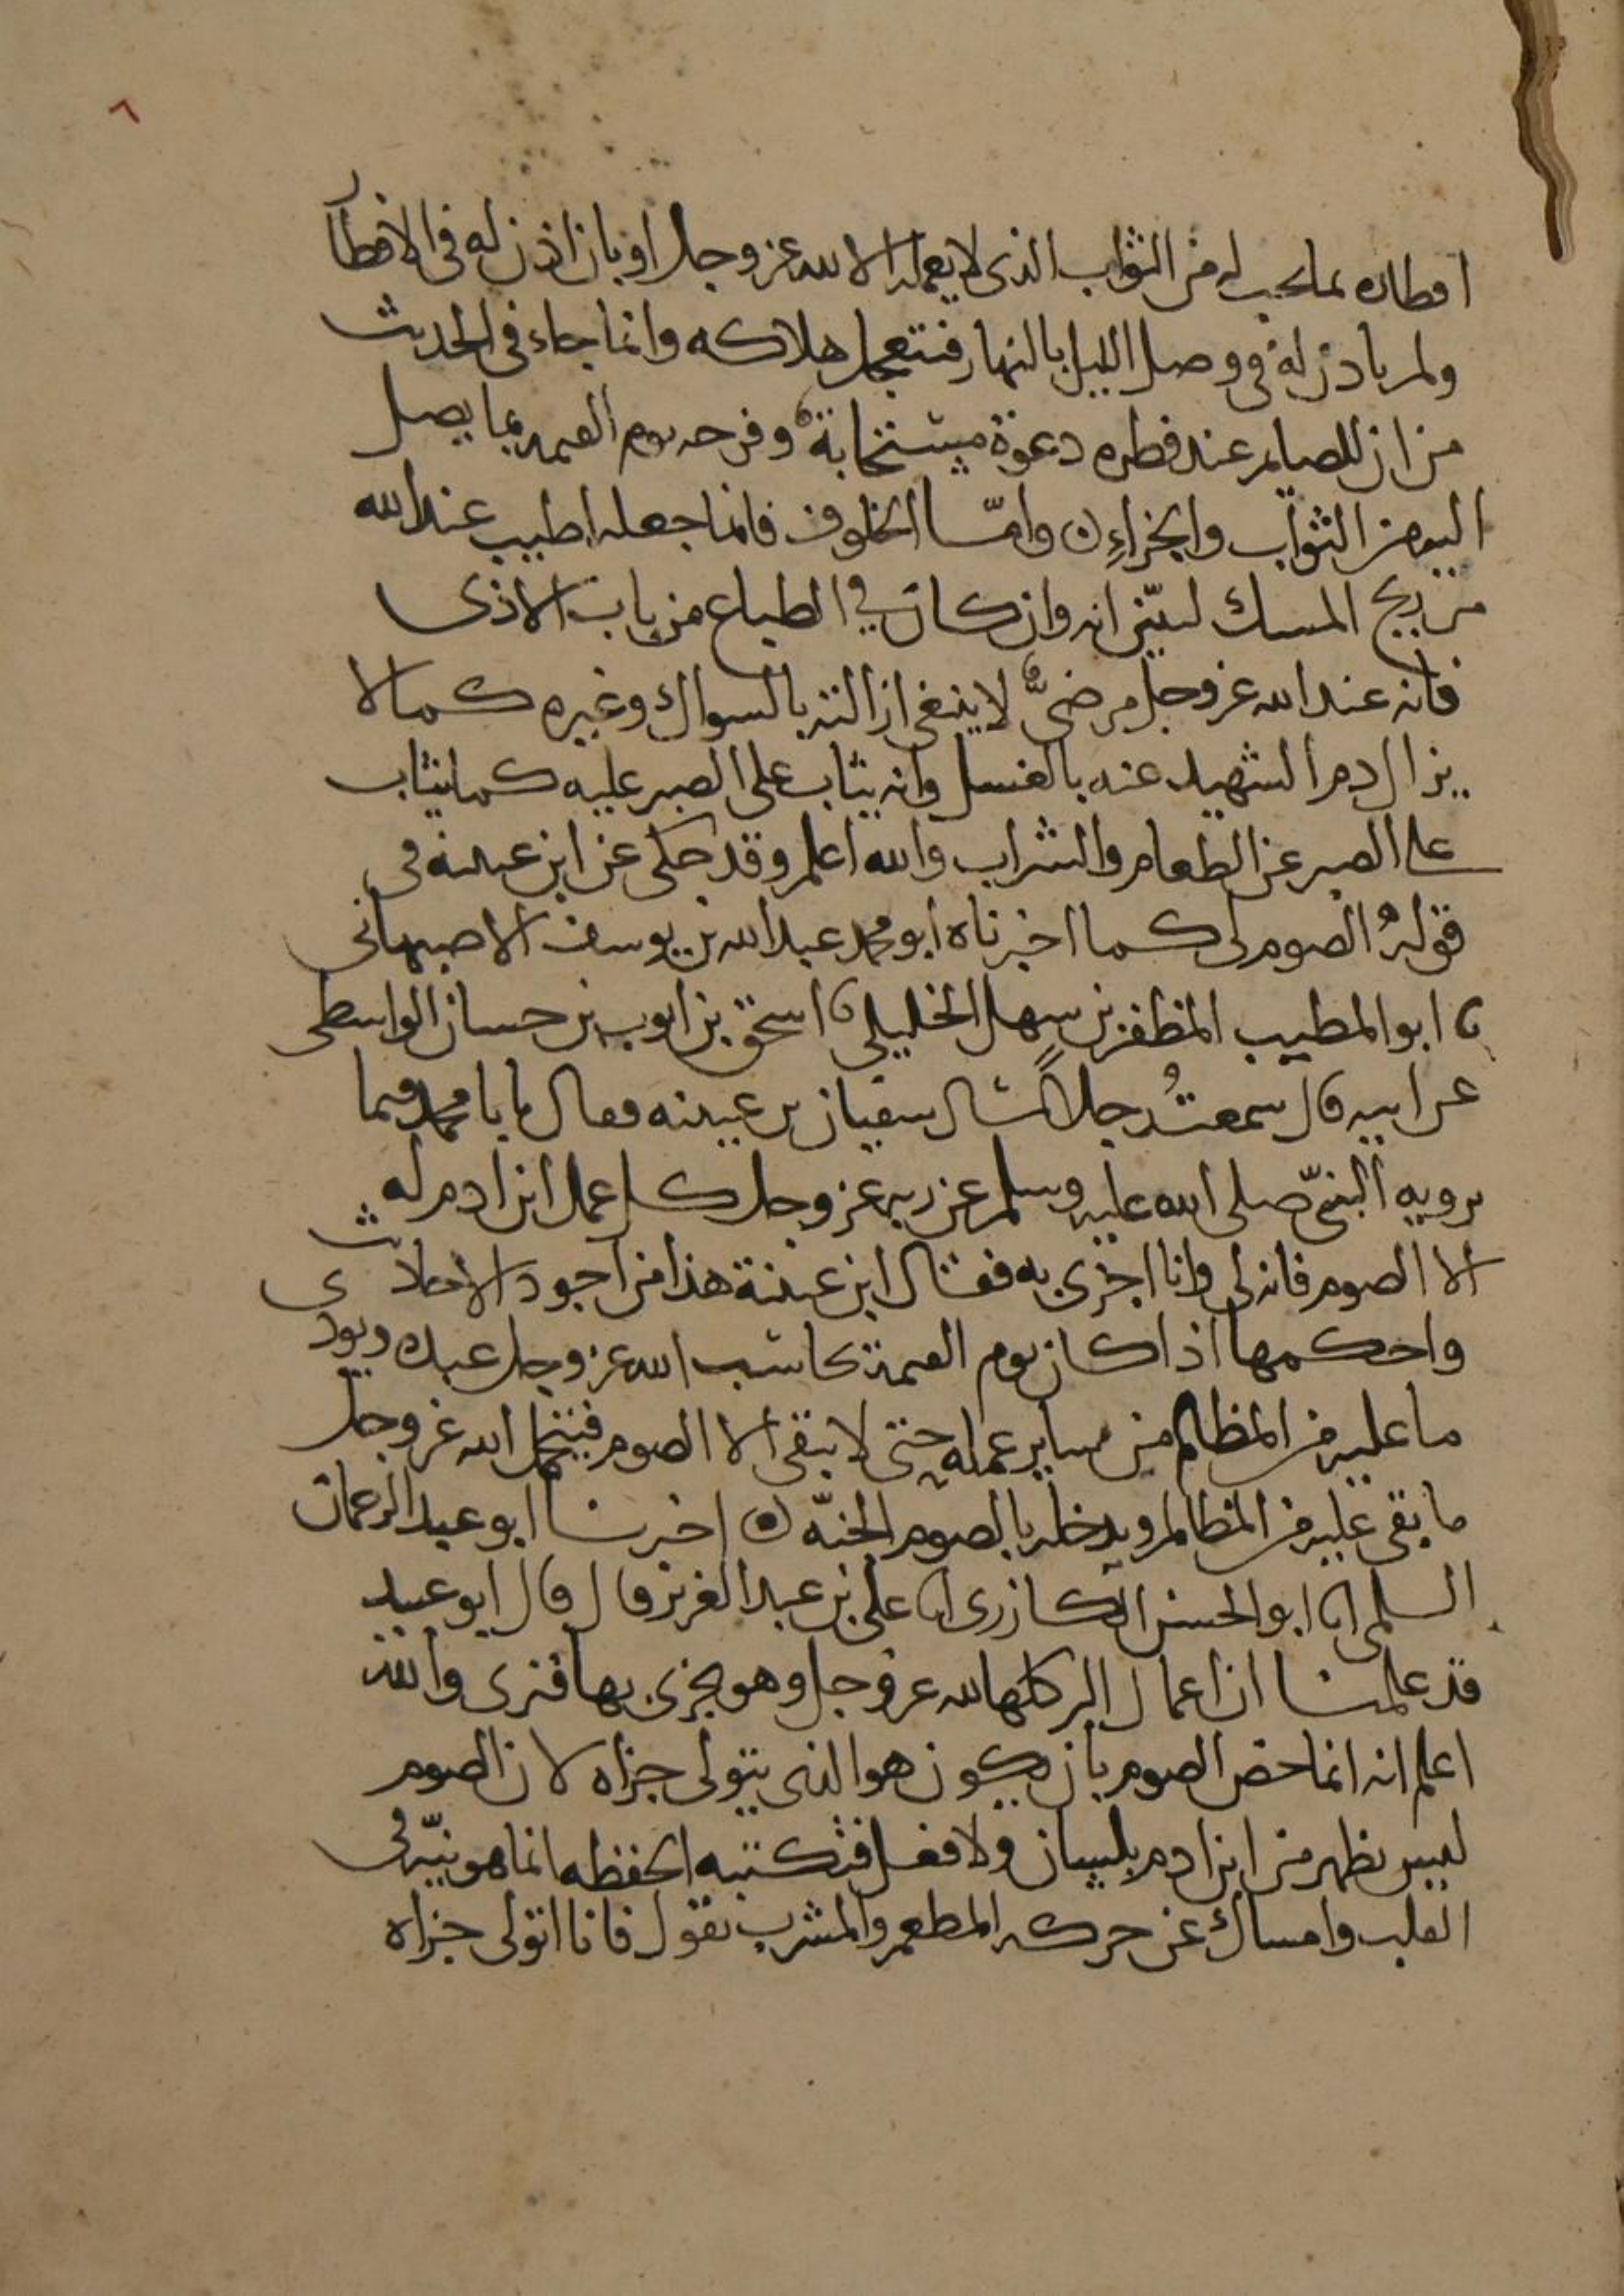 ٦
افطاره بما يجب له من الثواب الذى لا يعلمه الا الله عز وجل او بان اذن له فى الافطار
ولم ياذن له فى وصل الليل بالنهار فتتعجل هلاكه وانما جاء فى الحديث
من ان للصايم عند فطره دعوة مستجابة وفرحه يوم القيمه بما يصل
اليه من الثواب والجزاء وامّا الخلوف فانما جعله اطيب عند الله
من ريح المسك ليبيّن انه وان كان في الطباع من باب الاذى
فانه عند الله عز وجل مرضىٌّ لا ينبغى ازالته بالسواك وغيره كما لا
يزال دم الشهيد عنه بالغسل وانه يثاب على الصبر عليه كما يثاب
على الصبر عن الطعام والشراب والله اعلم وقد حكى عن ابن عيينه فى
قوله الصوم لى كما اخبرناه ابو محمد عبد الله بن يوسف الاصبهانى
ثا ابو المطيب المظفر بن سهل الخليلي ثا اسحق بن ايوب بن حسان الواسطى
عن ابيه قال سمعتُ رجلاً سال سفيان بن عيينه فقال يابا محمد فيما
يرويه النبىّ صلى الله عليه وسلم عن ربه عز وجل كل عمل ابن ادم له
الا الصوم فانه لى وانا اجزى به فقال ابن عيينة هذا من اجود الاحاديث
واحكمها اذا كان يوم القيمة يحاسب الله عز وجل عبده ويودى
ما عليه من المظالم من ساير عمله حتى لا يبقى الا الصوم فيتحمل الله عز وجل
ما بقى عليه من المظالم ويدخله بالصوم الجنّه ه اخبرنا ابو عبد الرحمان
السلمى انا ابو الحسن الكازرى انا على بن عبد العزيز قال قال ابو عبيد
قد علمنا ان اعمال البر كلها لله عز وجل وهو يجزى بها فنرى والله
اعلم انه انما خص الصوم بان يكون هو الذى يتولى جزاه لان الصوم
ليس يظهر من ابن ادم بلسان ولا فعل فتكتبه الحفظه انما هو نيّه فى
القلب وامساك عن حركه المطعم والمشرب يقول فانا اتولى جزاه